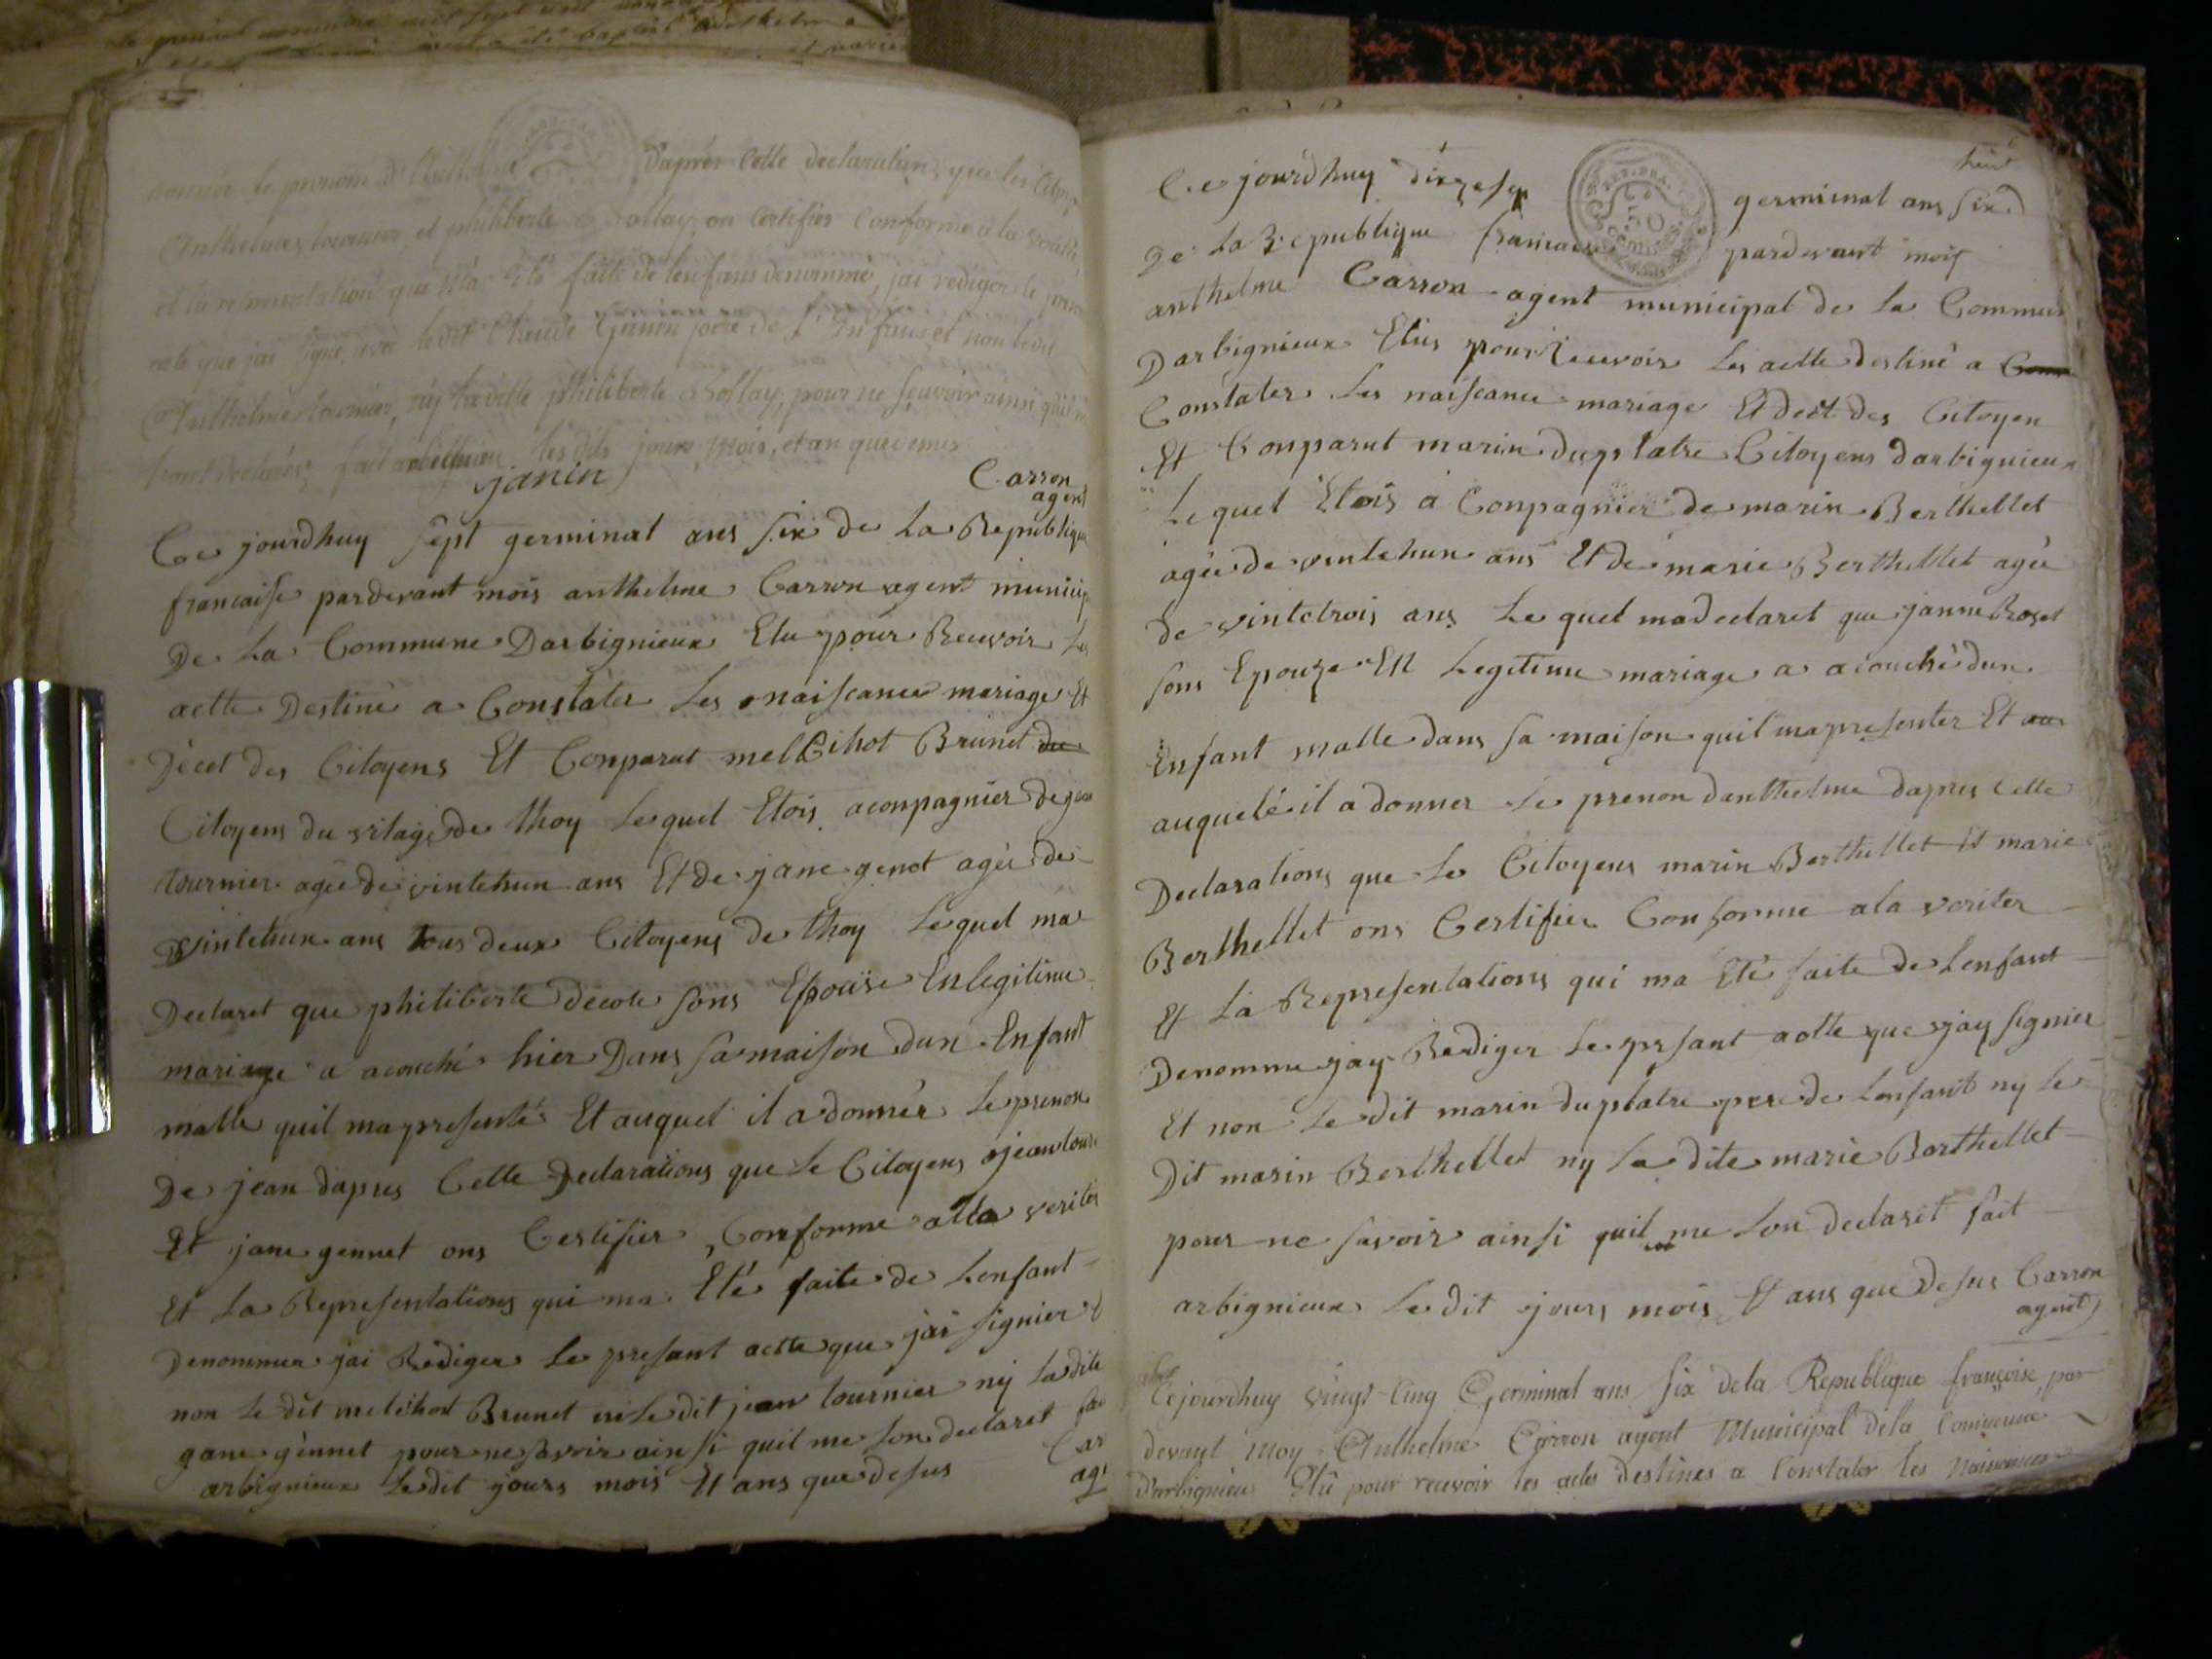 D'après Cette declaration, que les Cito
donnée le prenom d'
Anthelme tournier, et philiberte Sollay, on Certifier Conforme à la verité,
et la representation qui m'a été faite de l'enfans denommé, jai rediger le
acte que jai signé, avec ledit Claude Ganin pere de L'Enfans, et non ledit
Anthelme tournier, ny ladite philiberte Sollay, pour ne sçavoir ainsi qu'il
declarés, fait arbignieu les dits jours, Mois, et an que dessus
janin
Carron
agent
Ce jourdhuy sept germinal ans six de La Republique
francaise pardevant mois anthelme Carron agent municip
De La Commune Darbignieux Elu pour Recevoir Les
actte Destiné a Constater Les naiscance mariage Et
Décet des Citoyens Et Conparut melCihot Brunet du
Citoyens du vilage de thoy Lequel Etois aconpagnier de jean
tournier agée de vintehun ans Et de jane genot agée de
vintehun ans tous deux Citoyens de thoy Lequel ma
Declaret que philiberte decote sons Epouse En legitime
mariage a acouché hier Dans sa maison dun Enfant
malle quil ma presenté Et auquel il a donnér Le prenon
De jean dapres Cette Declarations que Le Citoyens jean tour
Et jane gennet ons Certifier Conforme alla veriter
Et La Representations qui ma Eté faite de Lenfant
Denommer jai Rediger Le presant actte que jai signier Et
non Le dit melchot Brunet ni Le dit jean tournier ny La dite
gane gennet pour ne savoir ainsi quil me Lon declaret fai
arbignieux Le dit jours mois Et ans que desus
Car
age
huit
Ce jourdhuy dix sep germinal ans six
De La Republique francaise pardevant mois
REP. FRA.
50
centimes
anthelme Carron agent municipal de La Commun
Darbignieux Elus pour Recevoir Les actte destiné a Cons
Constater Les naiscance mariage Et decet des Citoyen
Et Conparut marin duplatre Citoyens darbignieux
Lequel Etois a Conpagnier de marin Berthellet
agée de vintehun ans Et de marie Berthellet agée
de vintetrois ans Le quel ma declaret que janne Roset
sons Epouze En Legetime mariage a acouché dun
Enfant malle dans sa maison quil ma presenter Et au
auquelé il a donner Le prenon danthelme dapres Cette
Declarations que Le Citoyens marin Berthellet Et marie
Berthellet ons Certifier Conforme ala veriter
Et La Representations qui ma Eté faite de Lenfant
Denomme jay Rediger Le presant actte que jay signier
Et non Le dit marin duplatre pere de Lenfant ny Le
Dit marin Berthellet ny La dite marie Berthellet
pour ne savoir ainsi quil me Lon declaret fait
arbignieux Le dit jours mois Et ans que desus Carron
agent
Cejourdhuy vingt-Cinq Germinal ans six dela Republique françoise, par
devant Moy Anthelme Carron agent Municipal dela Commune
D'arbignieu Elû pour recevoir les actes destinés a Constater les Naissances